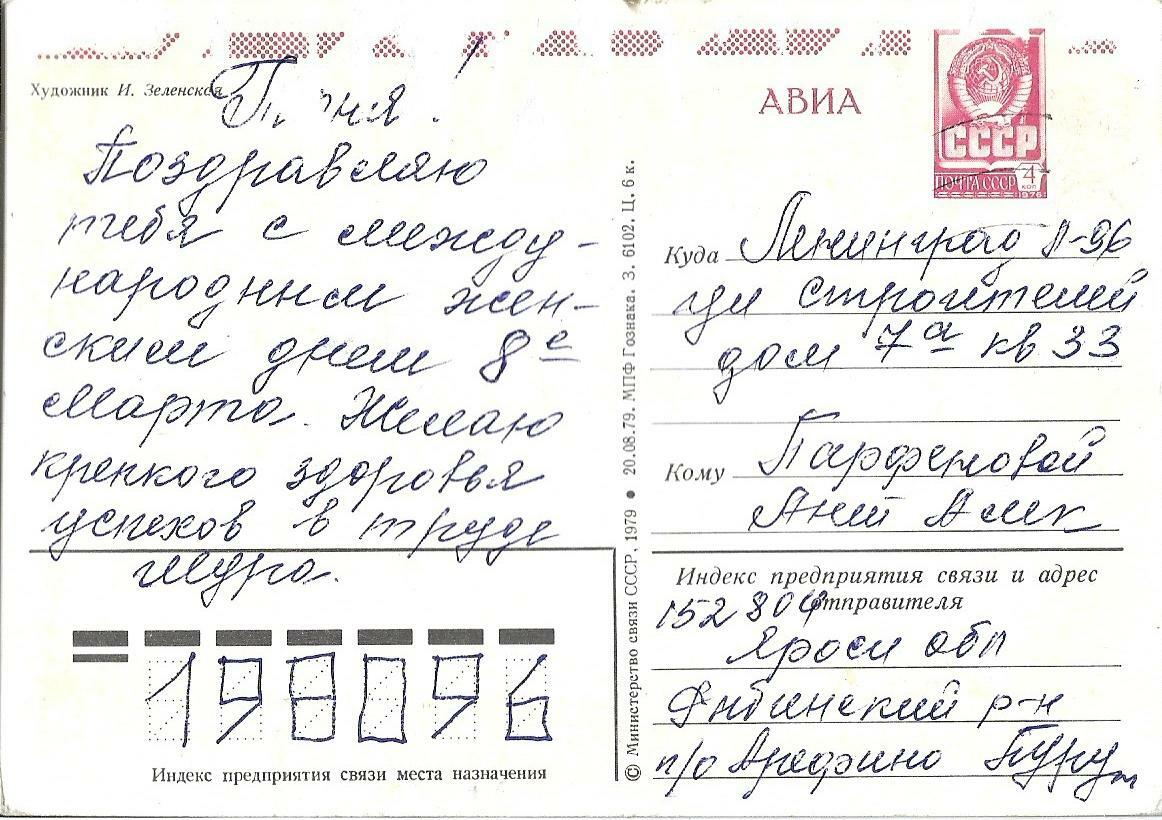 Художник И. Зеленская
Поздравляю
тебя с между-
народным жен-
ским днем 8е
Марта. Желаю
крепкого здоровья
успехов в труде
Шура.
Индекс предприятия связи места назначения
© Министерство связи СССР. 1979 ● 20.08.79. МПФ Гознака. З. 6102. Ц. 6 к.
АВИА
СССР
ПОЧТА СССР 4
КОП
1978
Куда Ленинград Л-96
ул Строителей
дом 7а кв 33
Кому Парфеновой
Анне Алек
Индекс предприятия связи и адрес
отправителя
152804
Яросл обл
Рыбинский р-н
п/о Арефино
198096